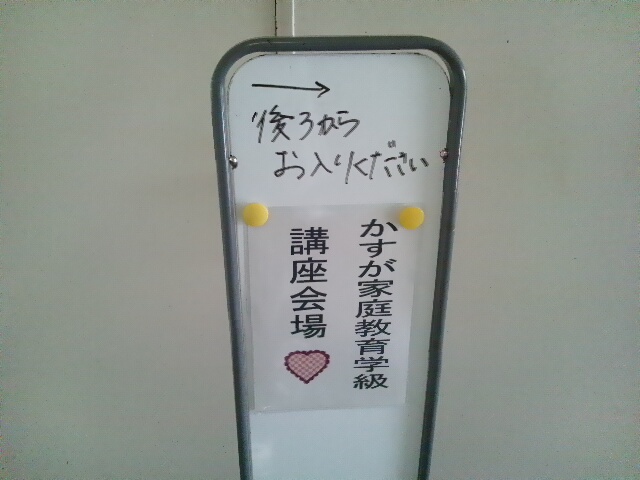 後ろから
お入りください
かすが家庭教育学級
講座会場